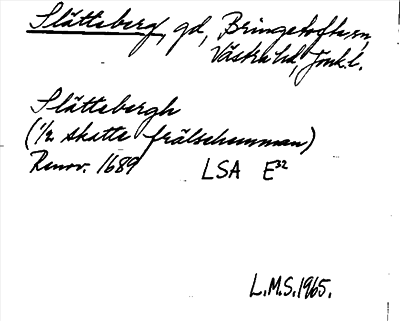 Slätteberg, gd, Bringetofta sn,
Västra hd, Jönk. l.
Slättebergh
(1/2 skatte frälsehemman)
Renov. 1689 LSA E32
L.M.S. 1965.